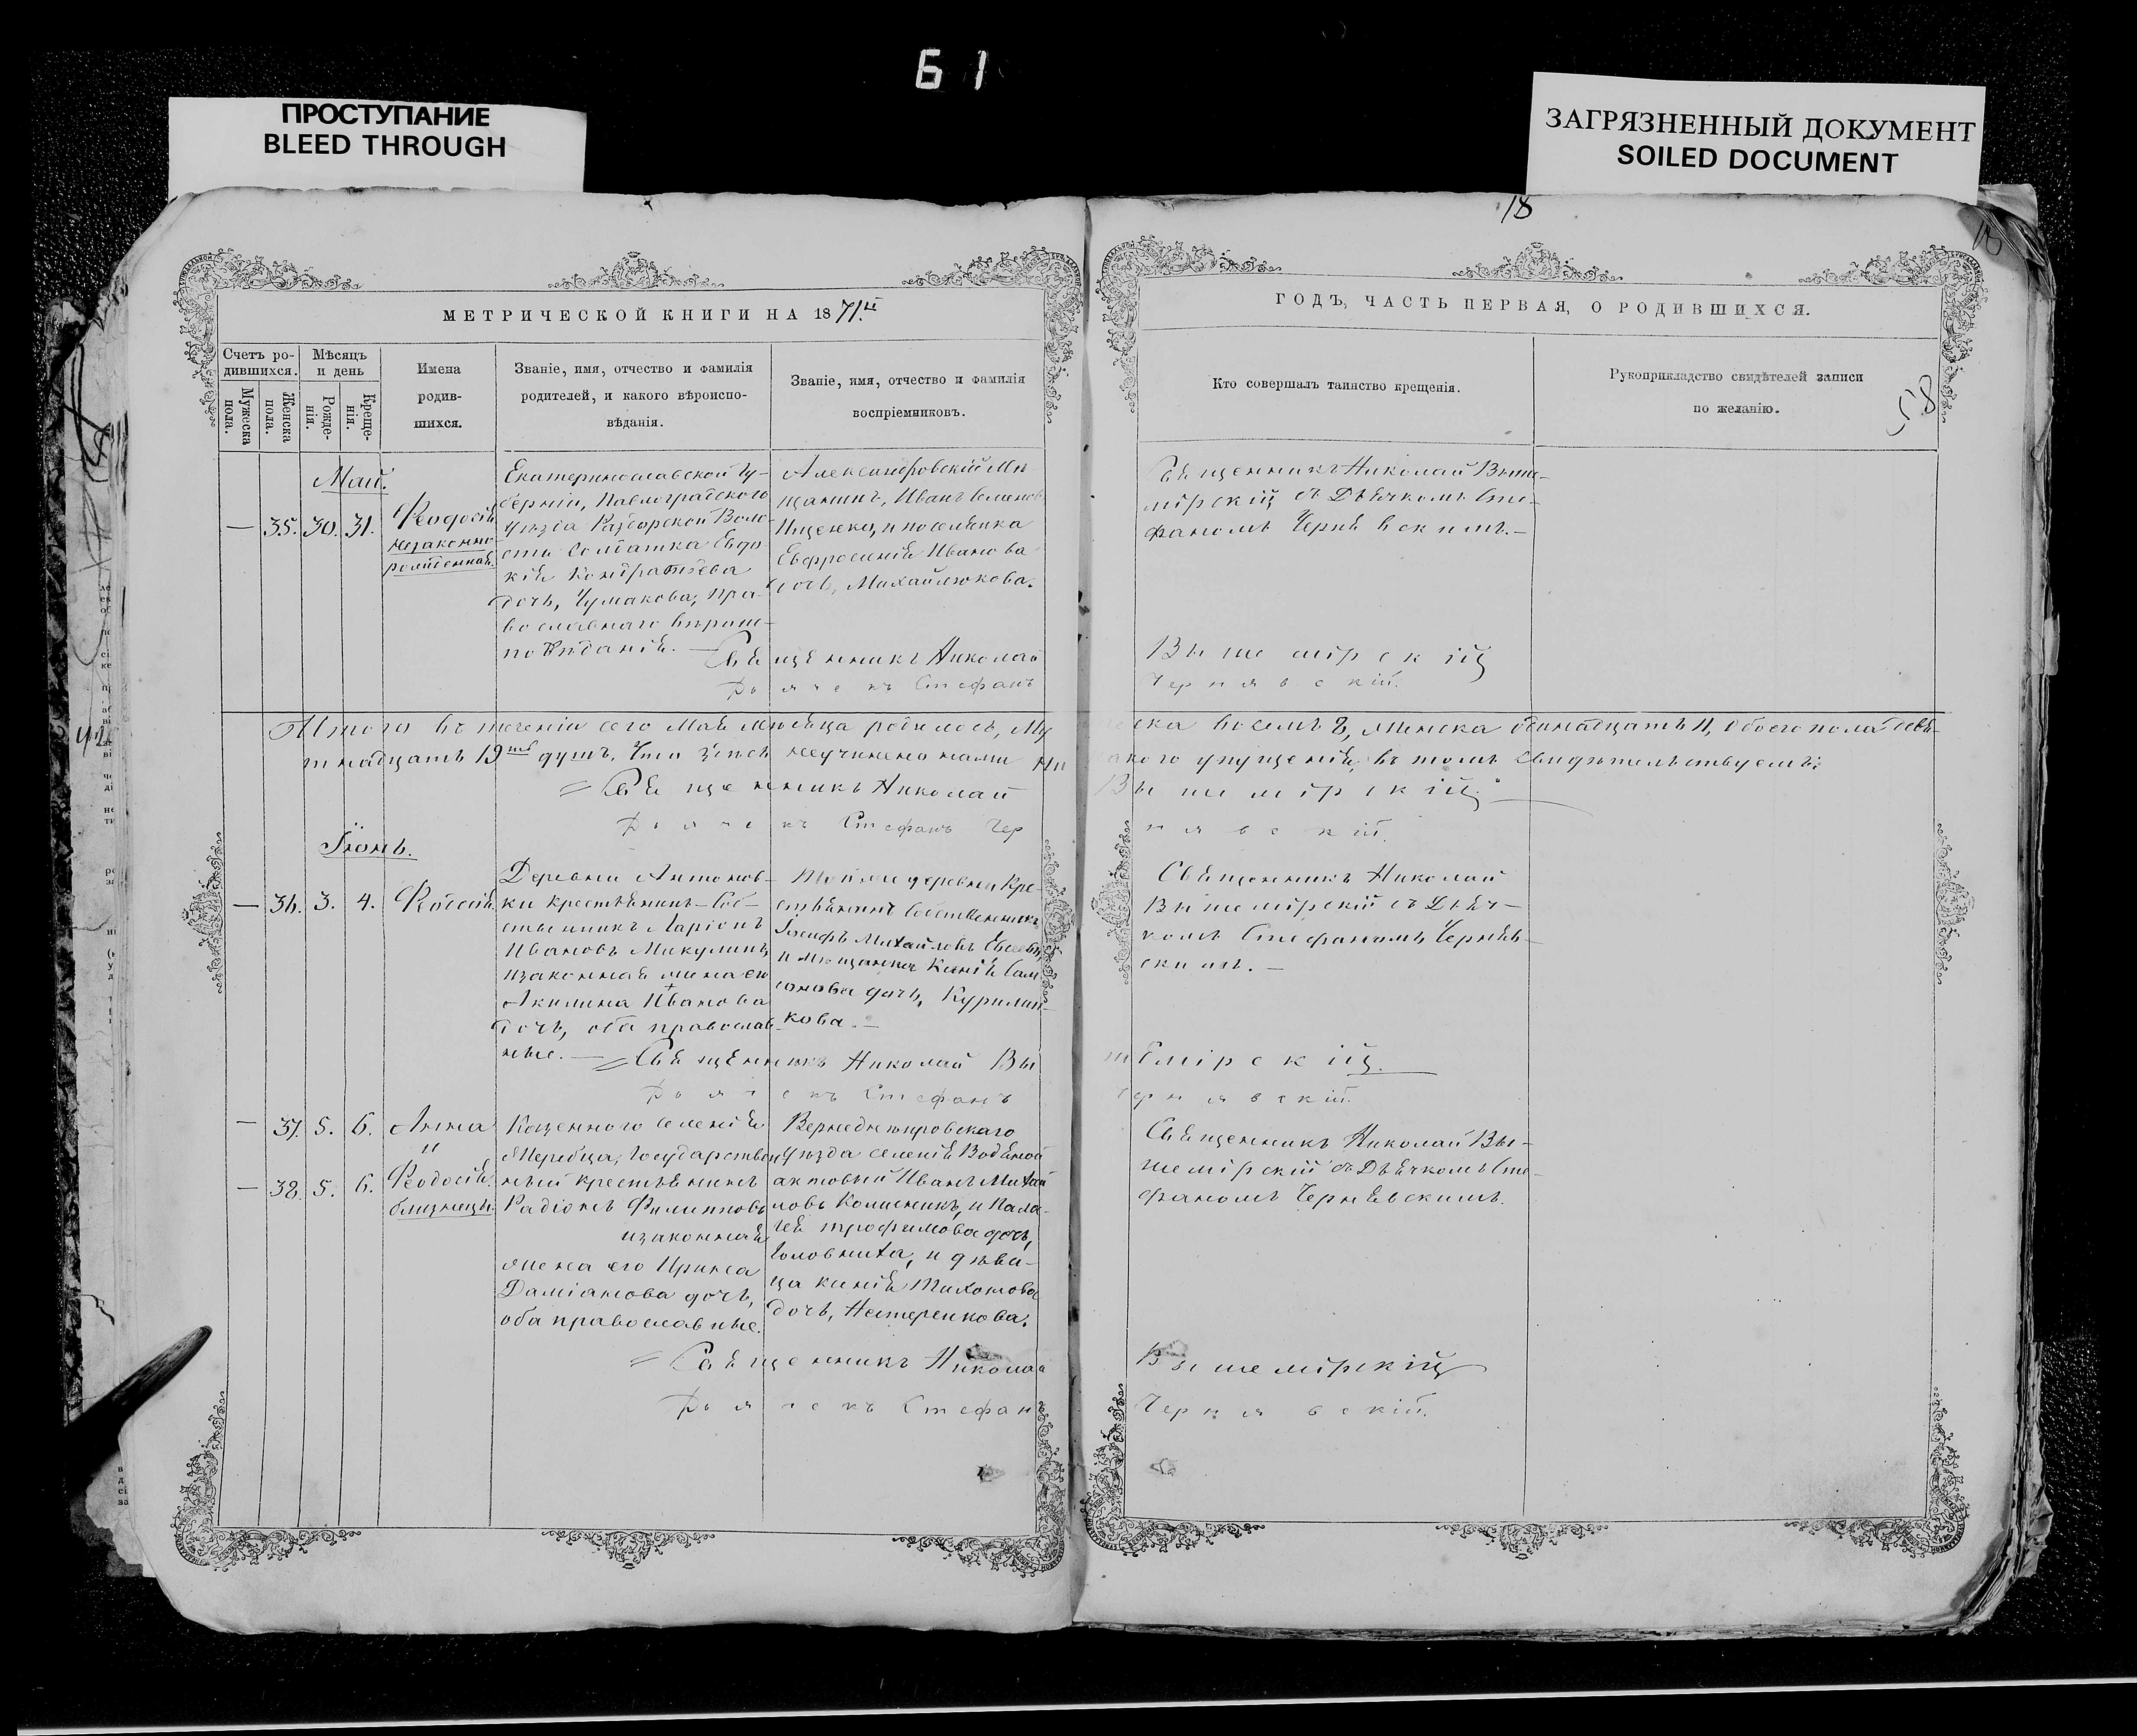 Б 1
ПРОСТУПАНИЕ
BLEED THROUGH
ЗАГРЯЗНЕННЫЙ ДОКУМЕНТ
SOILED DOCUMENT
18
МЕТРИЧЕСКОЙ КНИГИ НА 1871.й
ГОДЪ, ЧАСТЬ ПЕРВАЯ, О РОДИВШИХСЯ.
58
Счетъ ро-
дившихся.
Мужеска
пола.
Женска
пола.
Мѣсяцъ
и день
Рожде-
нія.
Креще-
нія.
Имена
родив-
шихся.
Званіе, имя, отчество и фамилія
родителей, и какого вѣроиспо-
вѣданія.
Званіе, имя, отчество и фамилія
воспріемниковъ.
Кто совершалъ таинство крещенія.
Рукоприкладство свидѣтелей записи
по желанію.
Май.
— 35. 30. 31.
Феодосія
незаконно
рожденная.
Екатеринославской Гу-
берніи, Павлоградского
Уѣзда Раздорской Воло-
сти Солдатка Евдо-
кія Кондратьева
дочь, Чумакова, пра-
вославнаго вѣроис-
повѣданія. —
Александровскій Мѣ
щанинъ, Иванъ Семенов
Ищенко, и поселянка
Евфросинія Иванова
дочь, Михайлюкова.
Священникъ Николай Выше-
мірскій съ Дьячкомъ Сте-
фаномъ Чернявскимъ. —
Священникъ Николай Вышемірскій
Дьячекъ Стефанъ Чернявскій.
Итого въ теченіи сего Мая мѣсяца родилось, Му ска восемь 8, женска одинадцать 11, обоего пола девя-
тнадцать 19ть душъ. Что здѣсь неучинено нами ни акого упущенія, въ томъ свидѣтельствуемъ:
Священникъ Николай Вышемірскій
Дьячекъ Стефанъ Чернявскій.
Іюнь.
— 36. 3. 4.
Феодосія.
Деревни Антонов-
ки крестьянинъ-Соб-
ственникъ Ларіонъ
Ивановъ Микулинъ,
изаконная жена его
Акилина Иванова
дочь, оба православ-
ные. —
Той же деревни Кре-
стьянинъ Собственникъ
Іосифъ Михайловъ
и мѣщанка Ксенія Сам
сонова дочь, Курилин-
кова. —
Священникъ Николай
Вышемірскій съ Дьяч-
комъ Стефаномъ Черняв-
скимъ. —
Священникъ Николай Вышемірскій
Дьячекъ Стефанъ Чернявскій.
— 37. 5. 6. Анна
и
— 38. 5. 6. Феодосія
близнецы.
Казенного Селенія
Жеребца, Государствен
ный крестьянинъ
Радіонъ Филипповъ
изаконная
жена его Ирина
Даміанова дочь,
оба православные.
Верхнеднѣпровскаго
Уѣзда селенія Водяной
Иванъ Михай
ловъ и Пала-
гея Трофимова дочь,
Головниха, и дѣви-
ца Ксенія Тихонова
дочь, Нестеренкова.
Священникъ Николай Вы-
шемірскій съ Дьячкомъ Сте-
фаномъ Чернявскимъ.
Священникъ Николай Вышемірскій
Дьячекъ Стефан Чернявскій.